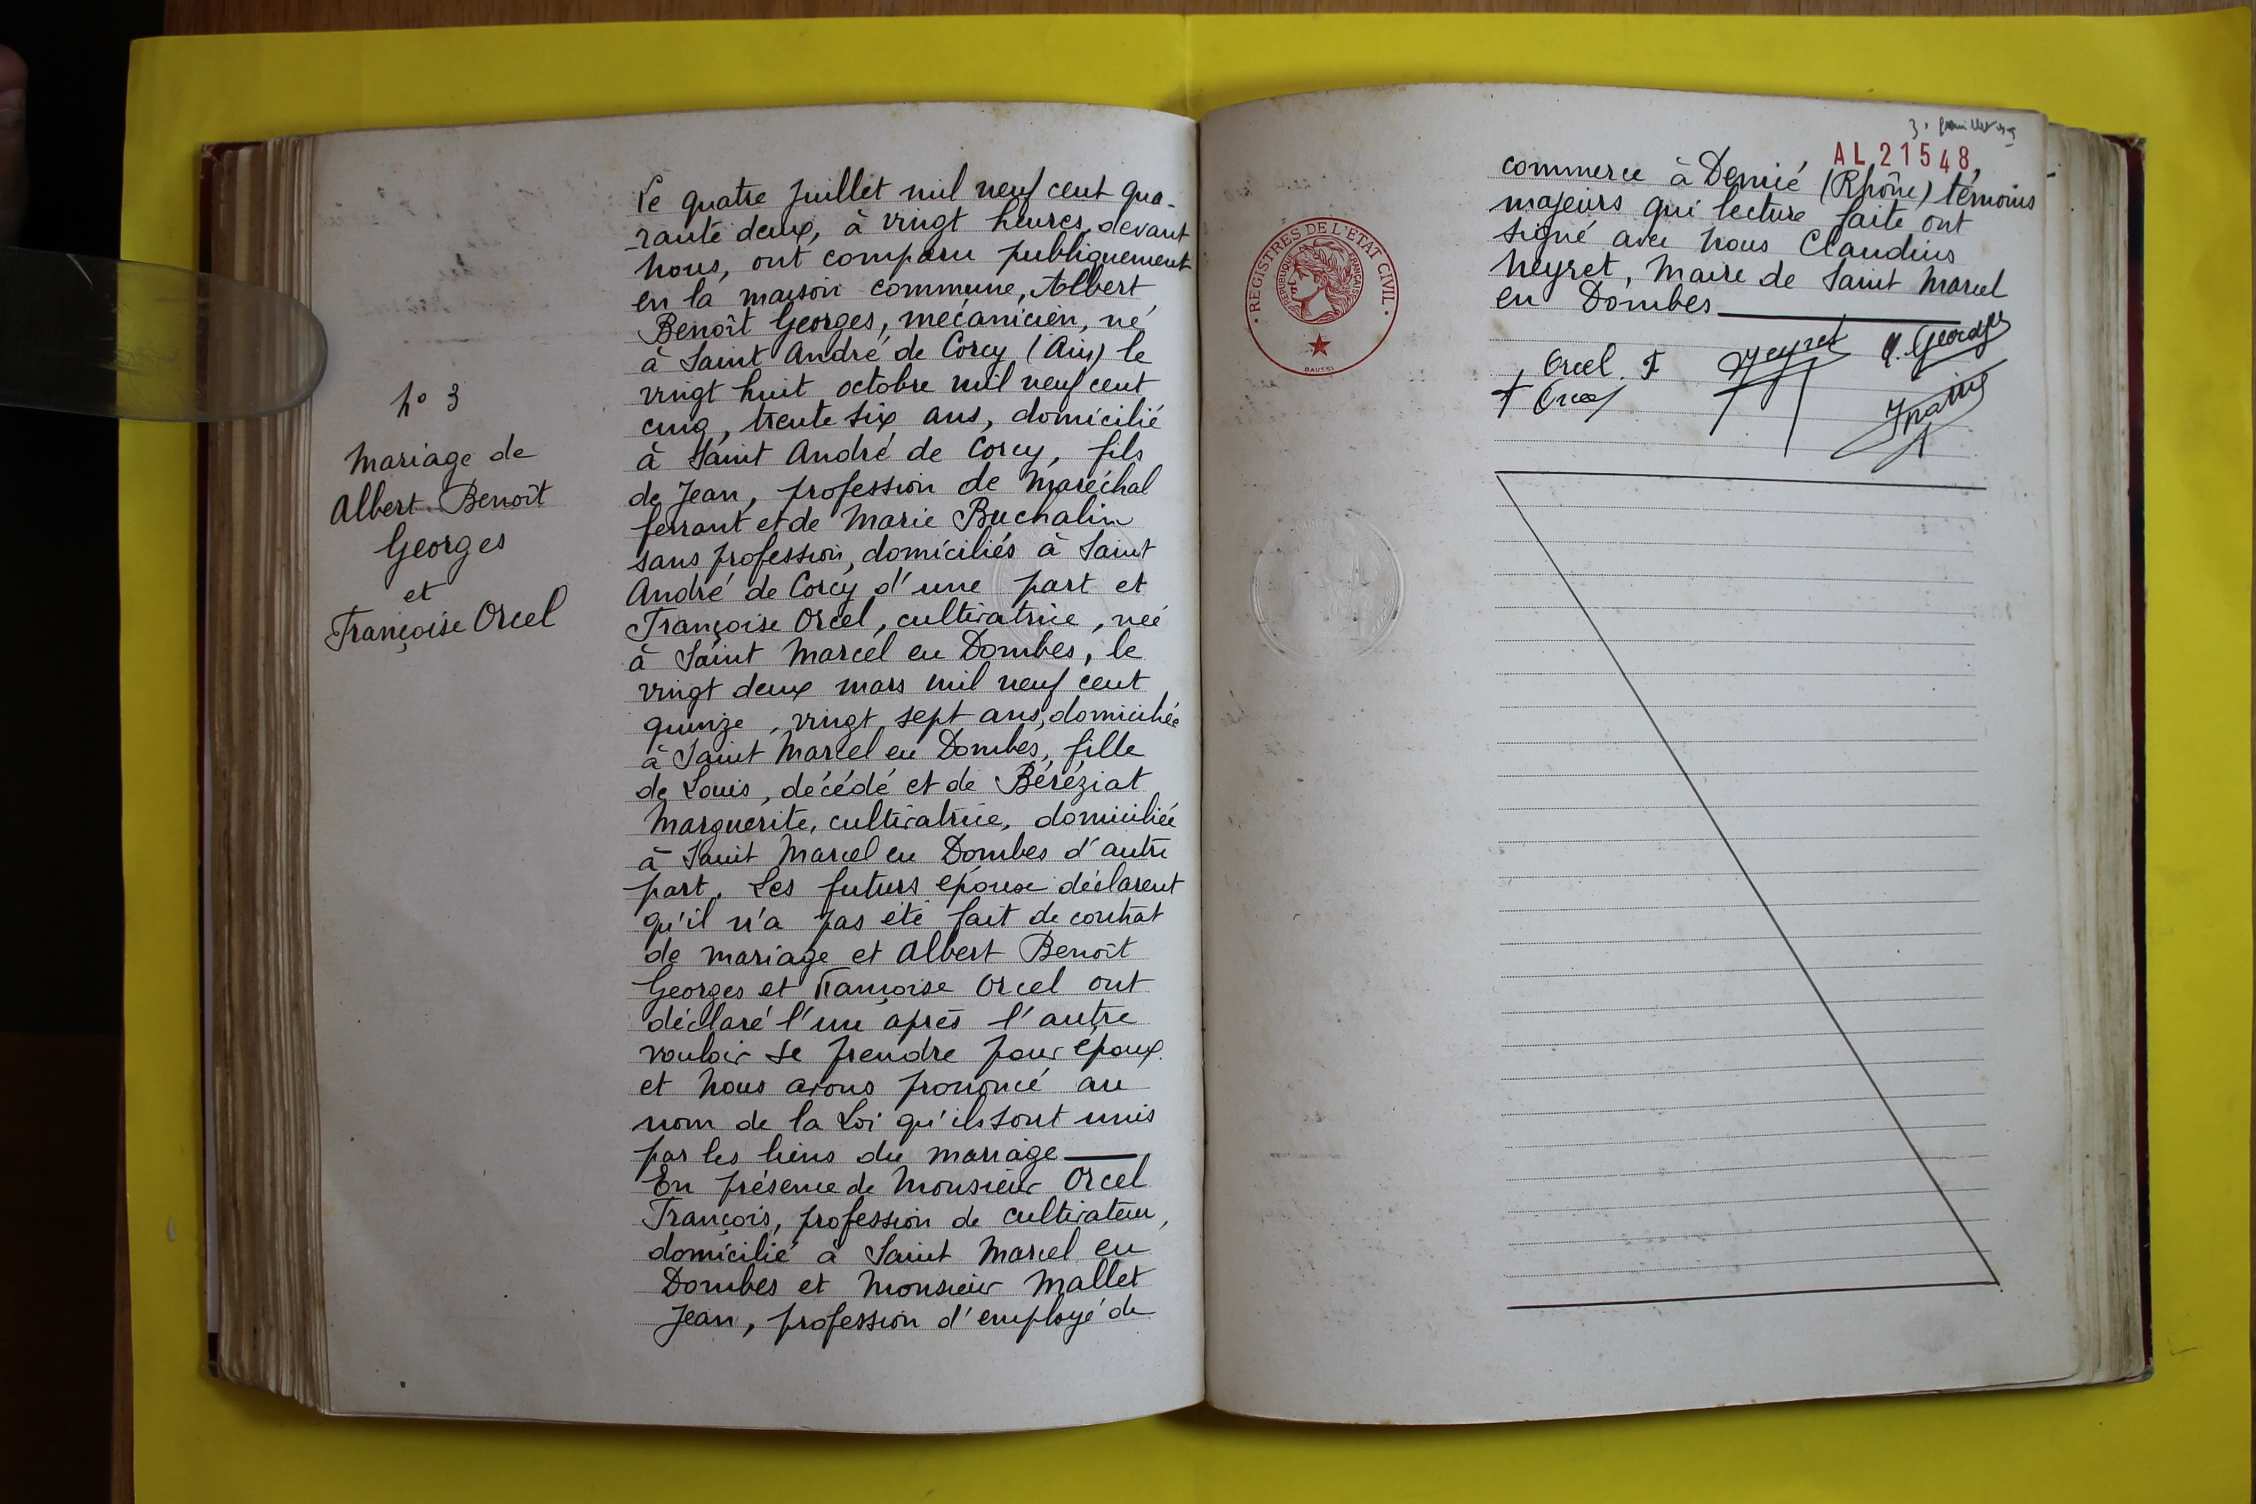 n° 3
Mariage de
Albert Benoît
Georges
et
Françoise Orcel
Le quatre Juillet mil neuf cent qua-
rante deux, à vingt heures, devant
nous, ont comparu publiquement
en la maison commune, Albert
Benoît Georges, mécanicien, né
à Saint André de Corcy (Ain) le
vingt huit octobre mil neuf cent
cinq, trente six ans, domicilié
à Saint André de Corcy, fils
de Jean, profession de Maréchal
ferrant et de Marie Buchalin
sans profession, domiciliés à Saint
André de Corcy d'une part et
Françoise Orcel, cultivatrice, née
à Saint Marcel en Dombes, le
vingt deux mars mil neuf cent
quinze, vingt sept ans, domiciliée
à Saint Marcel en Dombes, fille
de Louis, décédé et de Béréziat
Marguerite, cultivatrice, domiciliée
à Saint Marcel en Dombes d'autre
part. Les futurs époux déclarent
qu'il n'a pas été fait de contrat
de mariage et Albert Benoît
Georges et Françoise Orcel ont
déclaré l'un après l'autre
vouloir se prendre pour époux
et nous avons prononcé au
nom de la Loi qu'ils sont unis
par les liens du mariage
En présence de Monsieur Orcel
François, profession de cultivateur,
domicilié à Saint Marcel en
Dombes et Monsieur Mallet
Jean, profession d'employé de
AL21548
commerce à Denicé (Rhône) témoins
majeurs qui lecture faite ont
signé avec nous Claudius
Neyret, Maire de Saint Marcel
en Dombes
REGISTRES DE L'ETAT CIVIL
REPUBLIQUE FRANÇAISE
Orcel F
Neyret
A. Georges
Orcel